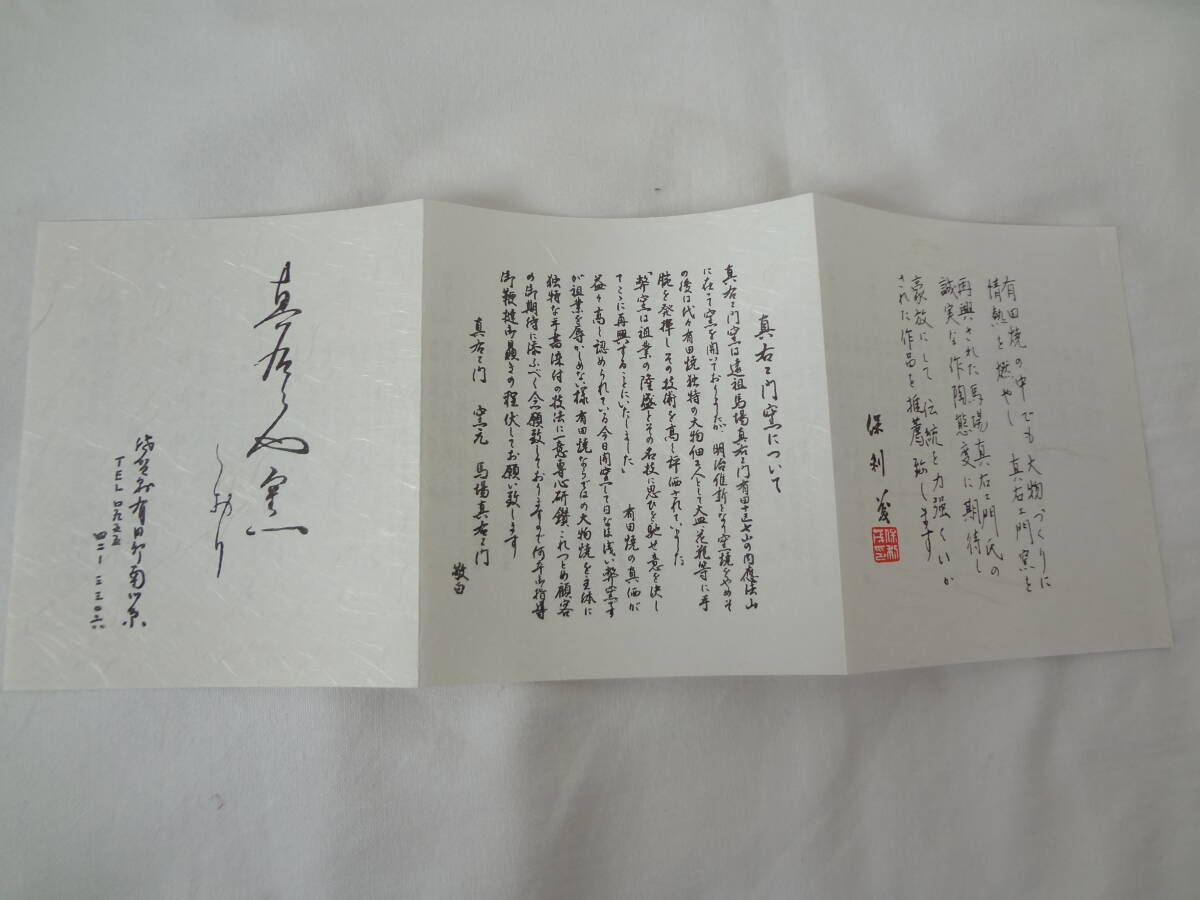 有田焼の中でも大物づくりに
情熱を燃やし 真右エ門窯を
再興された馬場真右エ門氏の
誠実な作陶態度に期待し
豪放にして 伝統を力強くいか
された作品を推薦致します
保利茂
真右エ門窯について
真右エ門窯は遠祖馬場真右エ門有田十三七山の内應法山
に在って窯を開いておりましたが、明治維新となり窯焼をやめそ
の後は代々有田焼独特の大物細工人として大皿、花瓶等に手
腕を発揮しその技術を高く評価されていました
「弊窯は祖業の隆盛とその名技に思ひを馳せ意を決し
てここに再興することにいたしました」 有田焼の真価が
益々高く認められている今日開窯して日なほ浅い弊窯です
が祖業を辱かしめない様有田焼ならではの大物焼を主体に
独特な手書染付の技法に一意専心研鑽これつとめ顧客
の御期待に添ふべく念願致しておりますので何卒御指導
御鞭撻御贔きの程伏してお願い致します
敬白
真右エ門 窯元 馬場真右エ門
真右エ門窯
しおり
佐賀県有田町南川原
TEL 〇九五五
四二-三三〇六